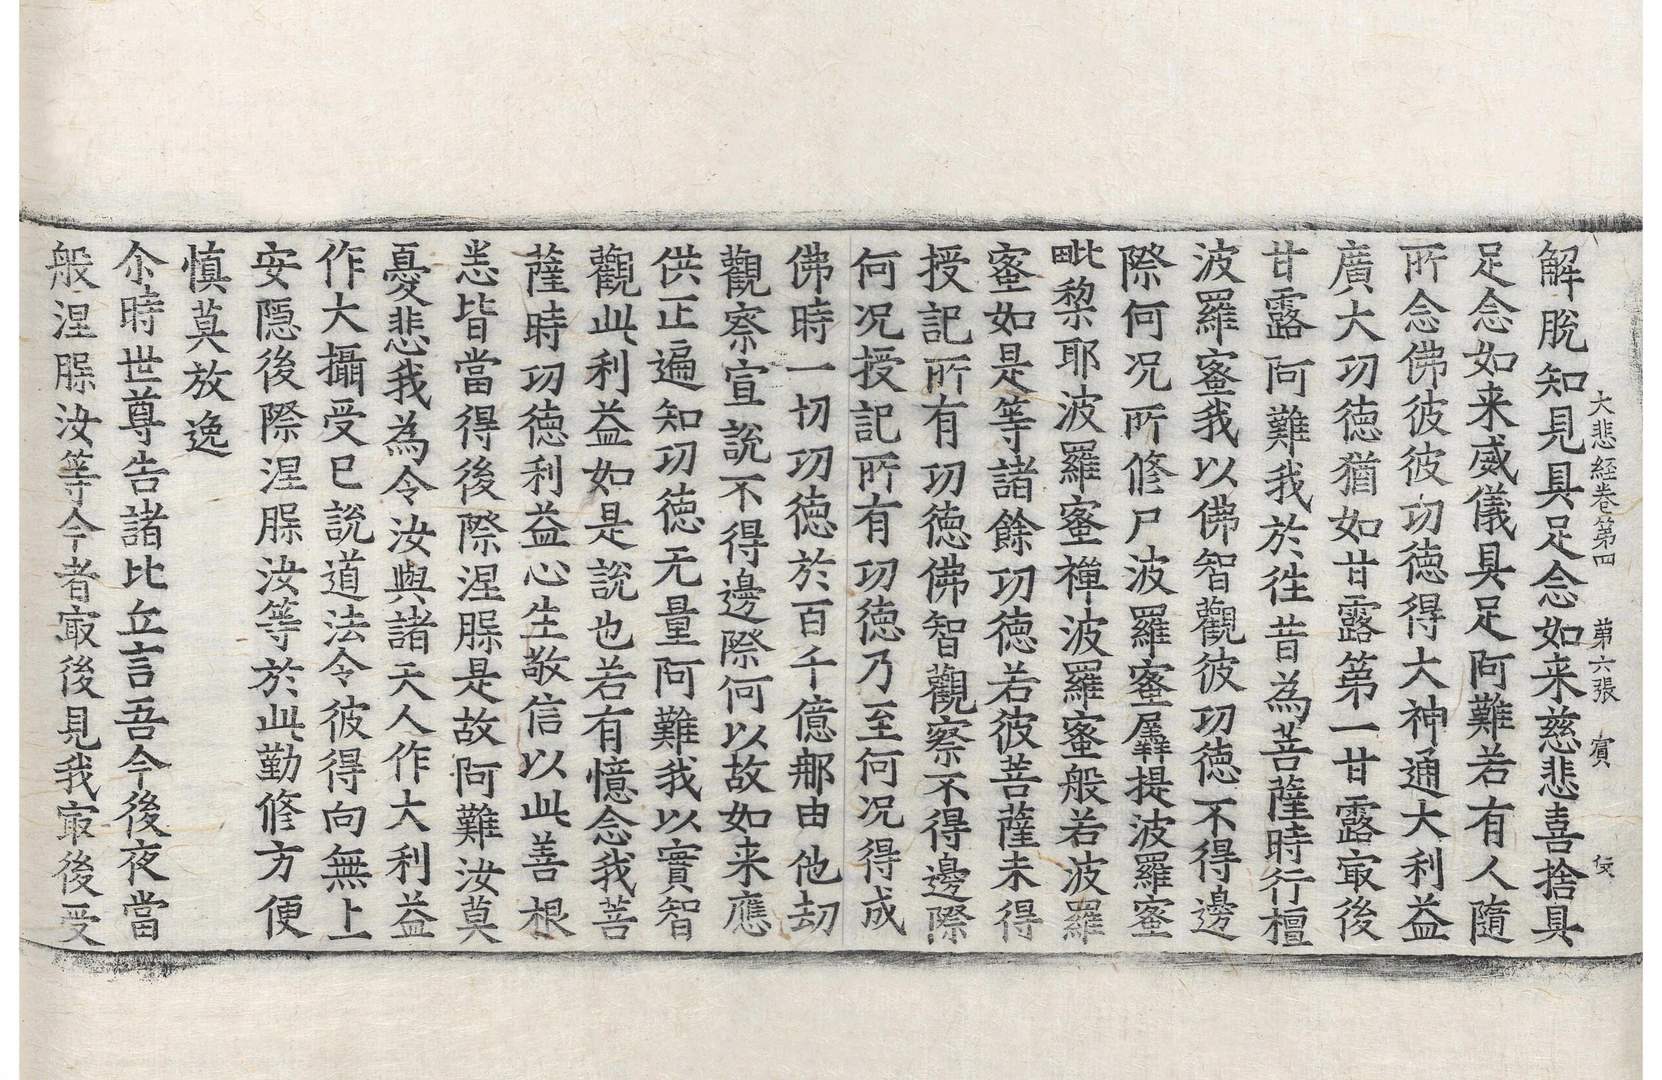 大悲経卷第四　第六張　賓
解脫知見具足念如来慈悲喜捨具
足念如来威儀具足阿難若有人隨
所念佛彼彼功德得大神通大利益
廣大功德猶如甘露第一甘露㝡後
甘露阿難我於往昔為菩薩時行檀
波羅蜜我以佛智觀彼功德不得邊
際何况所修尸波羅蜜羼提波羅蜜
毗棃耶波羅蜜禪波羅蜜般若波羅
蜜如是等諸餘功德若彼菩薩未得
授記所有功德佛智觀察不得邊際
何况授記所有功德乃至何况得成
佛時一切功德於百千億那由他劫
觀察宣說不得邊際何以故如来應
供正遍知功德无量阿難我以實智
觀此利益如是說也若有憶念我菩
薩時功德利益心生敬信以此善根
悉皆當得後際涅槃是故阿難汝莫
憂悲我為令汝與諸天人作大利益
作大攝受已說道法令彼得向無上
安隱後際涅槃汝等於此勤修方便
慎莫放逸
尒時世尊告諸比丘言吾今後夜當
般涅槃汝等今者㝡後見我㝡後受